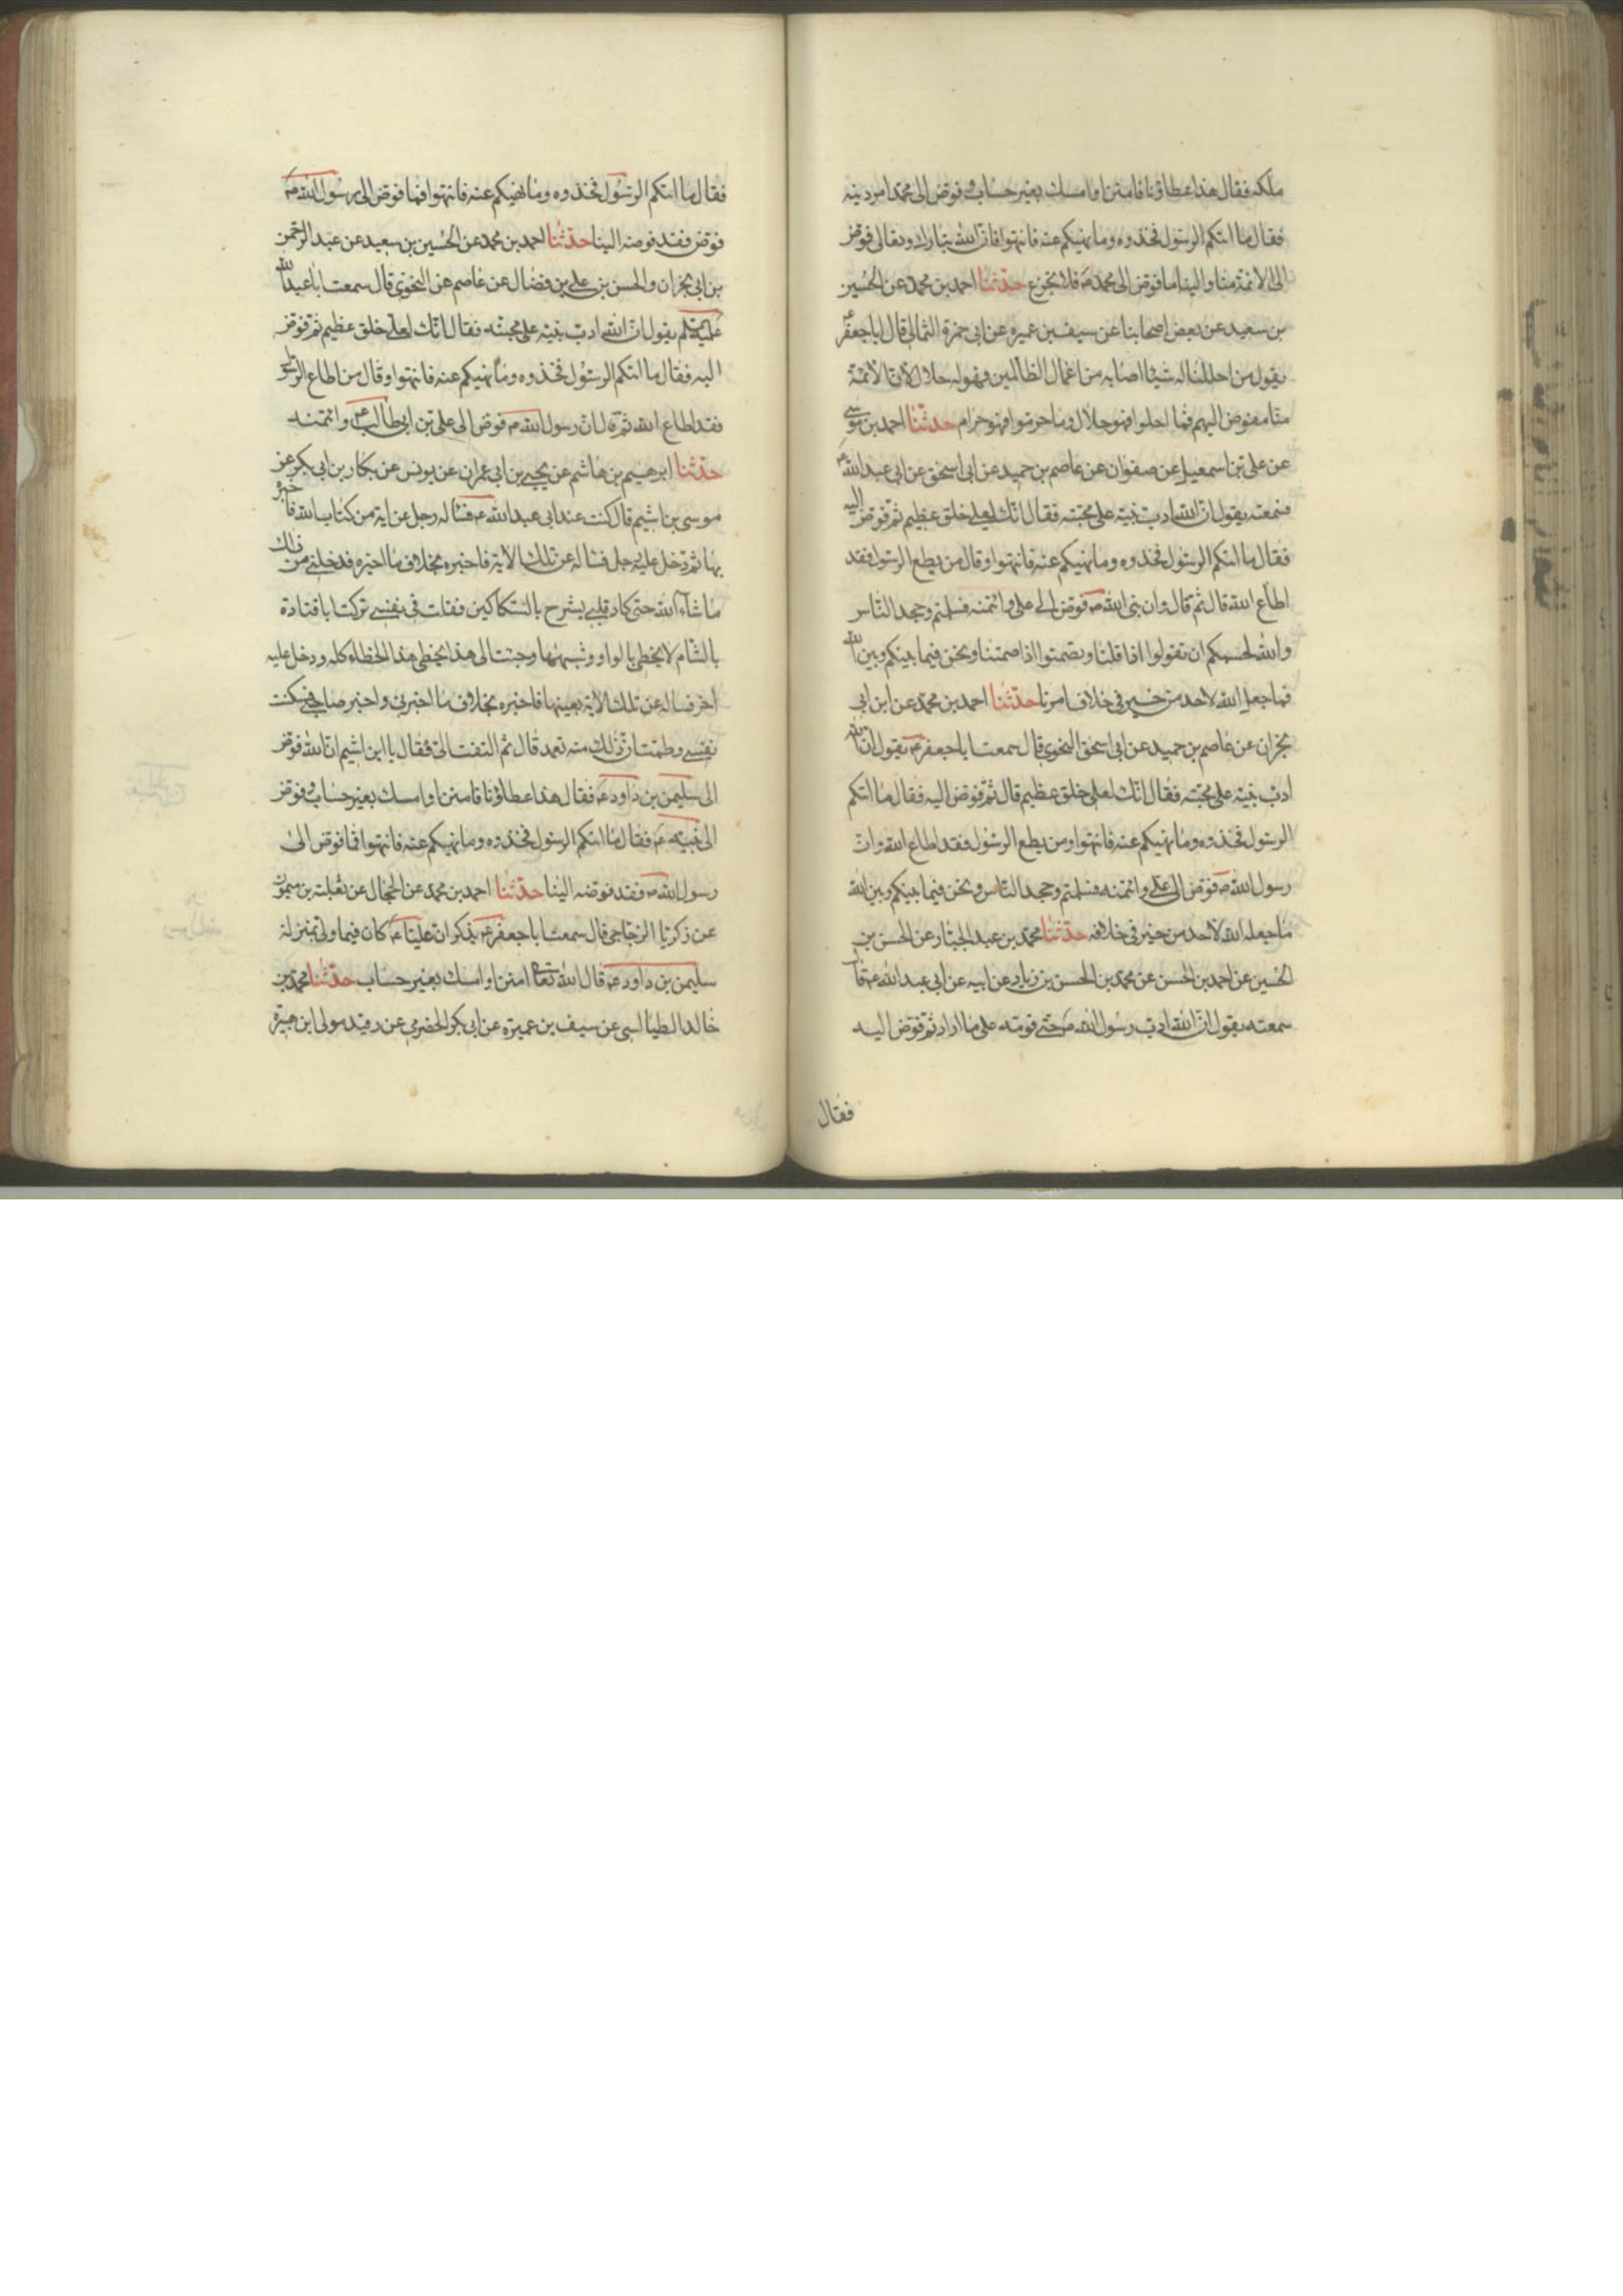 ملكه فقال هذا عطاؤنا فامنن او امسك بغير حساب وفوض الى محمد امر دينه
فقال ما اتيكم الرسول فخذوه وما نهيكم عنه فانتهوا فان الله تبارك وتعالى فوض
الى الائمة منا والينا ما فوض الى محمد ص فلا تجزع حدثنا احمد بن محمد عن الحسين
بن سعيد عن بعض اصحابنا عن سيف بن عميره عن ابي حمزة الثمالي قال ابا جعفر ع
يقول من احللنا له شيئا اصابه من اعمال الظالمين فهو له حلال لان الائمة
منا مفوض اليهم فما احلوا فهو حلال وما حرموا فهو حرام حدثنا احمد بن موسى
عن على بن اسمعيل عن صفوان عن عاصم بن حميد عن ابي اسحق عن ابي عبد الله ع
فسمعته يقول ان الله ادب نبيه على محبته فقال انك لعلى خلق عظيم ثم فوض اليه
فقال ما اتيكم الرسول فخذوه وما نهيكم عنه فانتهوا وقال من يطع الرسول فقد
اطاع الله قال ثم قال وان نبى الله ص فوض الى على وائتمنه فسلمتم وجحد الناس
والله لحسبكم ان تقولوا اذا قلنا وتصمتوا اذا صمتنا ونحن فيما بينكم وبين الله
فما جعل الله لاحد من خير في خلاف امرنا حدثنا احمد بن محمد عن ابن ابي
نجران عن عاصم بن حميد عن ابي اسحق النحوى قال سمعت ابا جعفر ع يقول ان الله
ادب نبيه على محبته فقال انك لعلى خلق عظيم قال ثم فوض اليه فقال ما اتيكم
الرسول فخذوه وما نهيكم عنه فانتهوا ومن يطع الرسول فقد اطاع الله وان
رسول الله ص فوض الى على وائتمنه فسلمتم وجحد الناس ونحن فيما بينكم وبين الله
ما جعل الله لاحد من خير في خلافه حدثنا محمد بن عبد الجبار عن الحسن بن
الحسين عن احمد بن الحسن عن محمد بن الحسن بن زياد عن ابيه عن ابي عبد الله ع قال
سمعته يقول ان الله ادب رسول الله ص حتى قومه على ما اراد ثم فوض اليه
فقال
فقال ما اتيكم الرسول فخذوه وما نهيكم عنه فانتهوا فما فوض الى رسول الله ص
فوض فقد فوضه الينا حدثنا احمد بن محمد عن الحسين بن سعيد عن عبد الرحمن
بن ابي نجران والحسن بن على بن فضال عن عاصم عن النحوى قال سمعت ابا عبد الله
عليه السلم يقول ان الله ادب نبيه على محبته فقال انك لعلى خلق عظيم ثم فوض
اليه فقال ما اتيكم الرسول فخذوه وما نهيكم عنه فانتهوا وقال من اطاع الرسول
فقد اطاع الله ثم قال ان رسول الله ص فوض الى على بن ابي طالب ع وائتمنه
حدثنا ابرهيم بن هاشم عن يحيى بن ابي عمران عن يونس عن بكار بن ابي بكر عن
موسى بن اشيم قال كنت عند ابي عبد الله ع فساله رجل عن اية من كتاب الله فاخبره
بها ثم دخل عليه رجل فساله عن تلك الاية فاخبره بخلاف ما اخبره فدخلنى من ذلك
ما شاء الله حتى كاد قلبى يشرح بالسكاكين فقلت في نفسى تركت ابا قتادة
بالشام لا يخطى بالواو وشبهها وجئت الى هذا يخطى هذا الخطاء كله ودخل عليه
اخر فساله عن تلك الاية بعينها فاخبره بخلاف ما اخبرنى واخبر صاحبى فسكنت
نفسى وعلمت ان ذلك منه تعمد قال ثم التفت الى فقال يا ابن اشيم ان الله فوض
الى سليمن بن داود ع فقال هذا عطاؤنا فامنن او امسك بغير حساب وفوض
الى نبيه ع فقال ما اتيكم الرسول فخذوه وما نهيكم عنه فانتهوا فما فوض الى
رسول الله ص فقد فوضه الينا حدثنا احمد بن محمد عن الحجال عن ثعلبة بن ميمون
عن زكريا الزجاجي قال سمعت ابا جعفر ع يذكر ان عليا ع كان فيما ولى بمنزلة
سليمن بن داود ع قال الله تعالى امنن او امسك بغير حساب حدثنا محمد بن
خالد الطيالسى عن سيف بن عميرة عن ابي بكر الحضرمي عن رفيد مولى ابن هبيرة